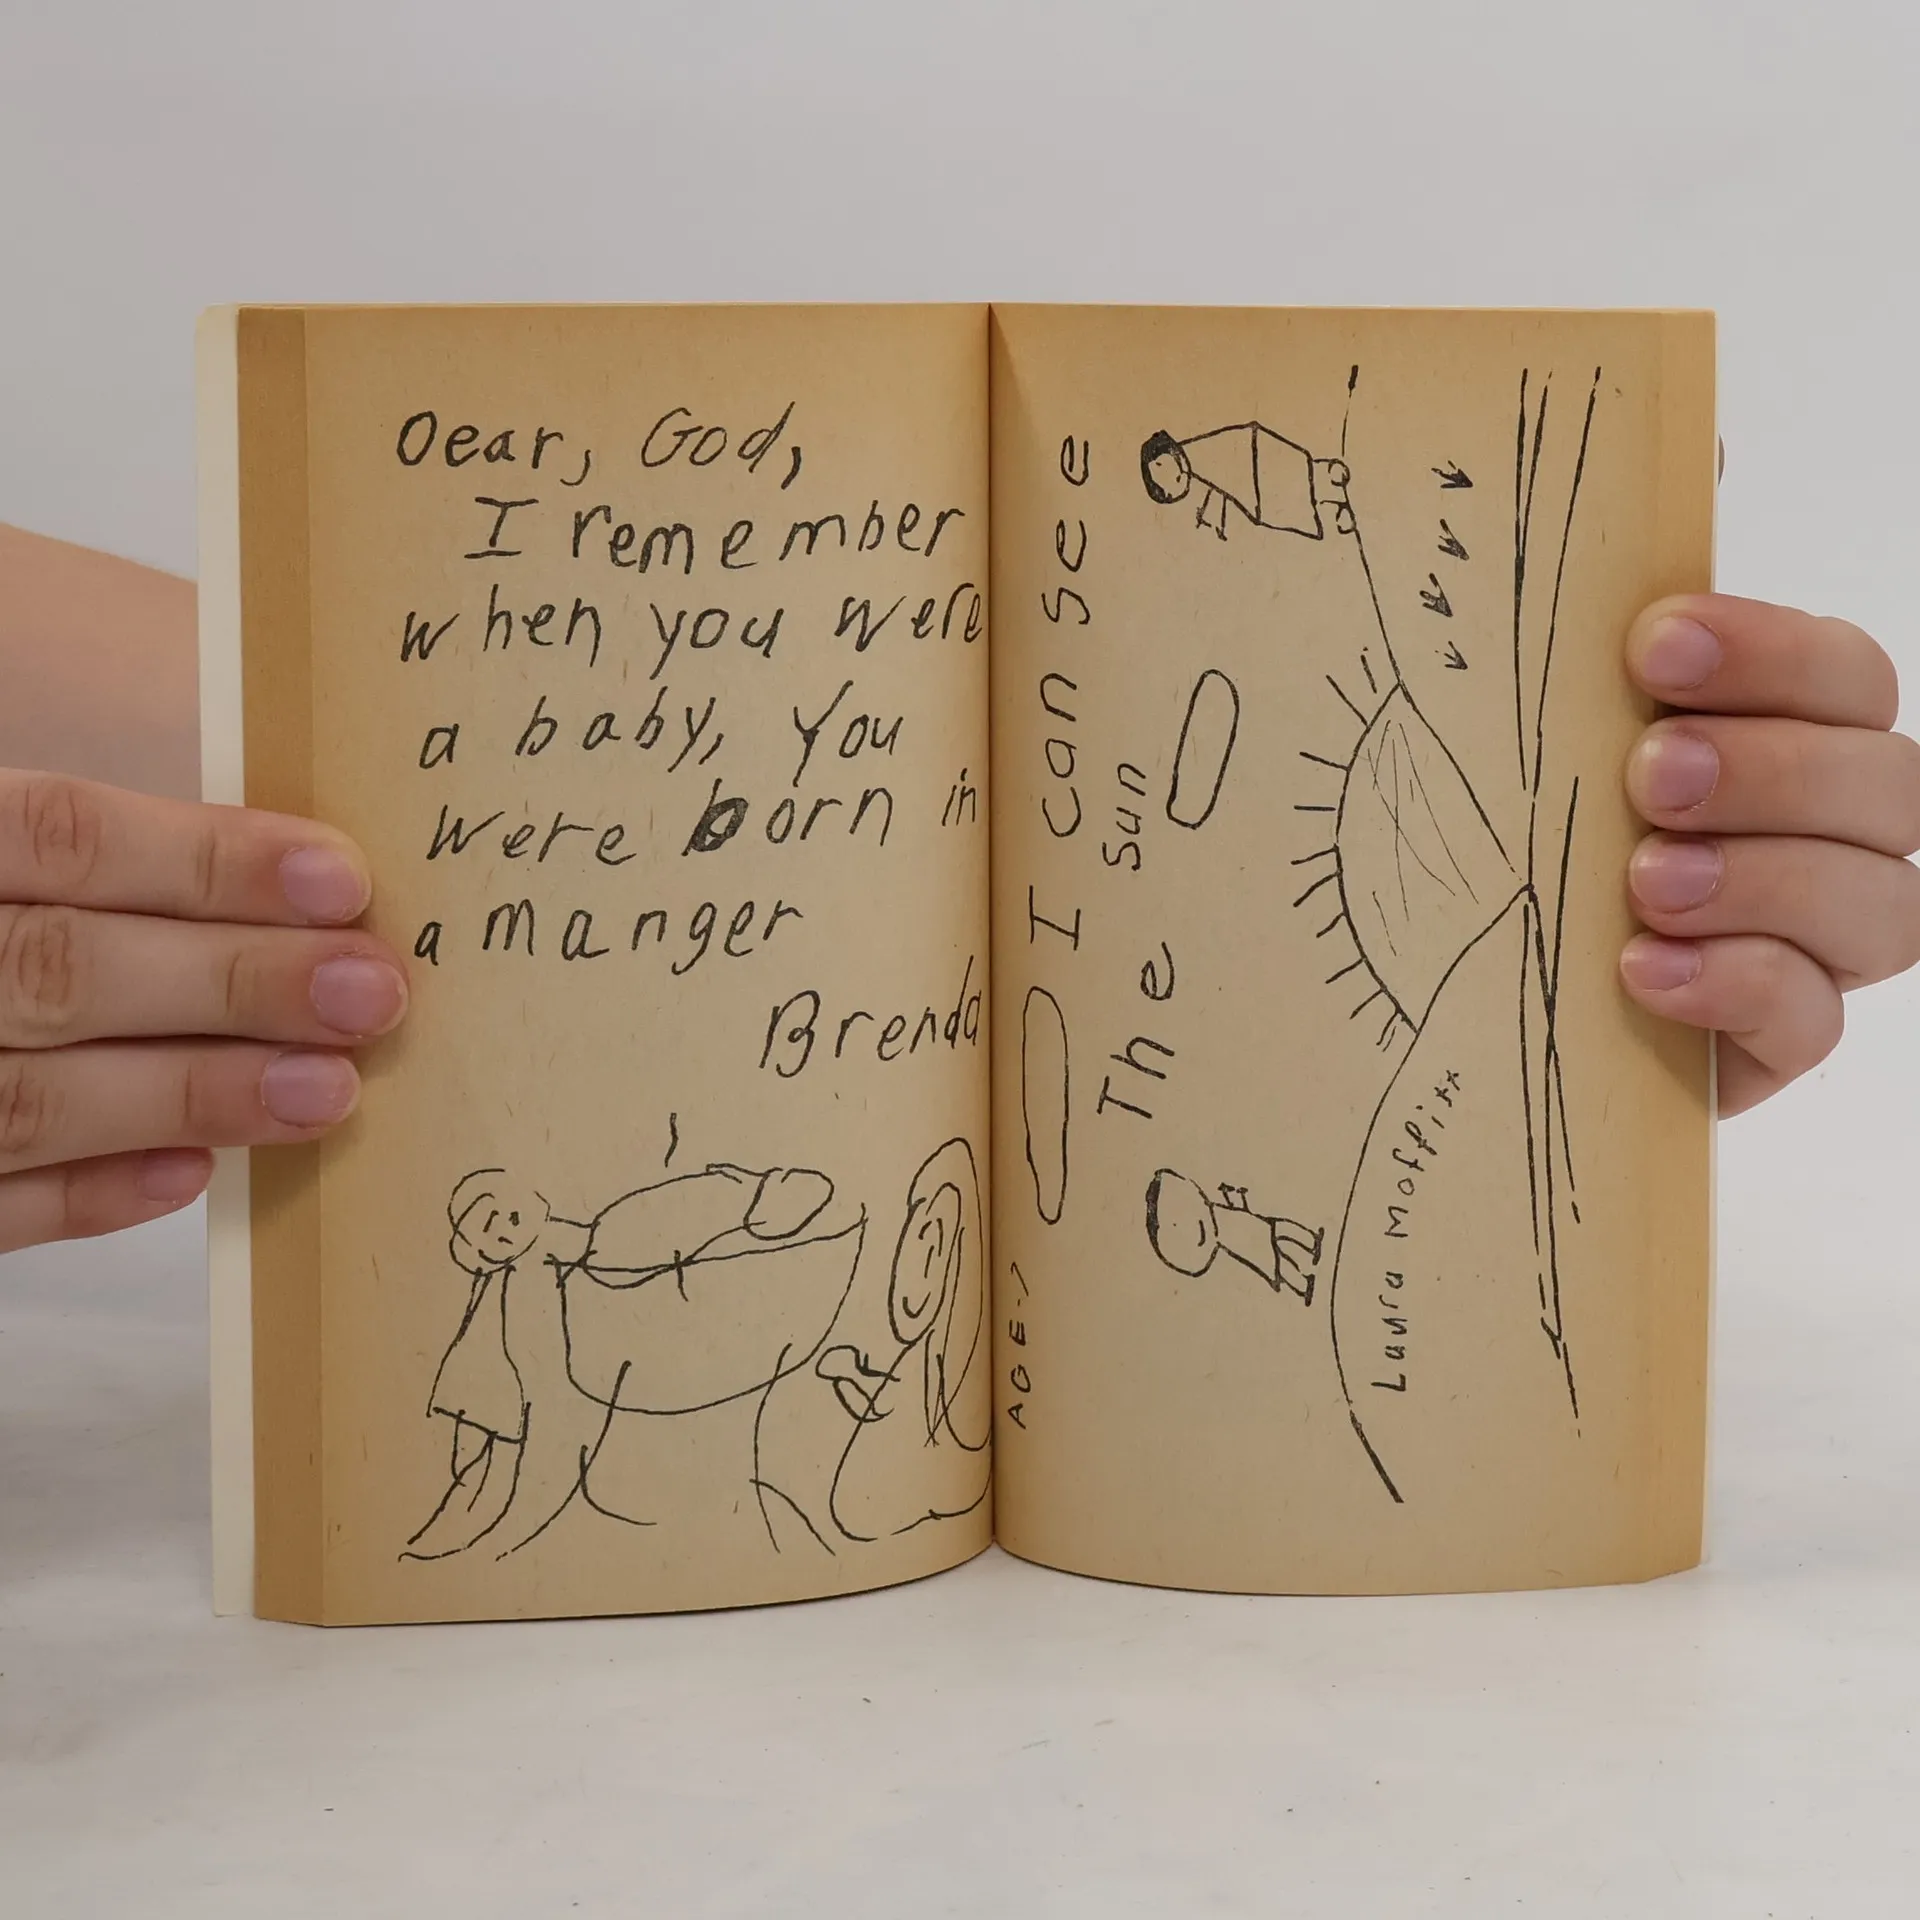 Dear, God,
I remember
when you were
a baby, you
were born in
a manger
Brenda
I can see
The sun
Laura Moffixx
AGE-7